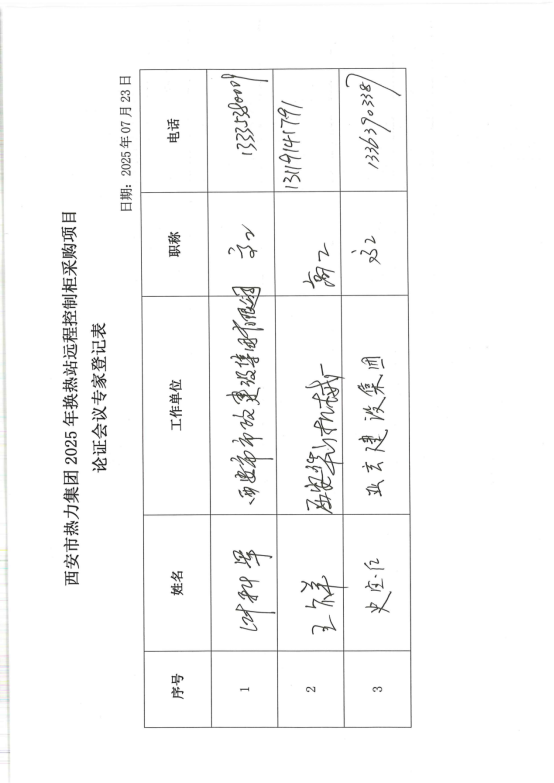 西安市热力集团 2025 年换热站远程控制柜采购项目
论证会议专家登记表
日期：2025 年 07 月 23 日
序号 姓名 工作单位 职称 电话
1 西安市市政建设集团有限公司 高工
2 高工 13119141791
3 建设集团 高工 13363903387